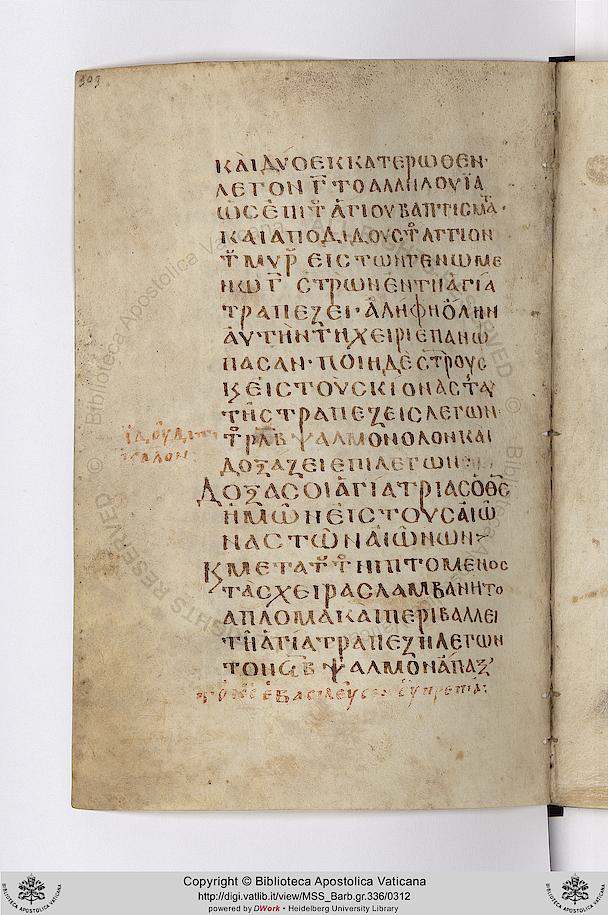 303
ΚΑΙ ΔΥΟ ΕΚΚΑΤΕΡΩΘΕΝ·
ΛΕΓΟΝ Γ ΤΟ ΑΛΛΗΛΟΥΪΑ
ΩΣ ΕΠΙ Τ ΑΓΙΟΥ ΒΑΠΤΙΣΜΑ·
ΚΑΙ ΑΠΟΔΙΔΟΥΣ Τ ΑΓΓΙΟΝ
Τ ΜΥΡ ΕΙΣ ΤΩΝ ΓΕΝΩΜΕ
ΝΩ Γ ΣΤΡΩΝ ΕΝ ΤΗ ΑΓΙΑ
ΤΡΑΠΕΖΕΙ· ΑΛΗΦΗ ΟΛΗΝ
ΑΥΤΗΝ ΤΗ ΧΕΙΡΙ ΕΠΑΝΩ
ΠΑΣΑΝ· ΠΟΙΗ ΔΕ ΣΤΡΟΥΣ
Κ ΕΙΣ ΤΟΥΣ ΚΙΟΝΑΣ ΤΑΥ
ΤΗΣ ΤΡΑΠΕΖΕΙΣ ΛΕΓΩΝ
Τ ΡΛΒ ΨΑΛΜΟΝ ΟΛΟΝ ΚΑΙ
ΔΟΞΑΖΕΙ ΕΠΙΛΕΓΩΝ
ΔΟΞΑ ΣΟΙ ΑΓΙΑ ΤΡΙΑΣ Ο ΘΣ
ΗΜΩΝ ΕΙΣ ΤΟΥΣ ΑΙΩ
ΝΑΣ ΤΩΝ ΑΙΩΝΩΝ
Κ ΜΕΤΑ ΤΤ ΝΙΠΤΟΜΕΝΟΣ
ΤΑΣ ΧΕΙΡΑΣ ΛΑΜΒΑΝΗ ΤΟ
ΑΠΛΟΜΑ ΚΑΙ ΠΕΡΙΒΑΛΛΕΙ
ΤΗ ΑΓΙΑ ΤΡΑΠΕΖΗ ΛΕΓΩΝ
ΤΟΝ ϘΒ ΨΑΛΜΟΝ ΑΠΑΞ
ὁ κς ἐβασίλευσεν εὐπρεπία:
ἰδοὺ δὴ τι
καλον
© Biblioteca Apostolica Vaticana
RIGHTS RESERVED
Copyright © Biblioteca Apostolica Vaticana
http://digi.vatlib.it/view/MSS_Barb.gr.336/0312
powered by DWork - Heidelberg University Library